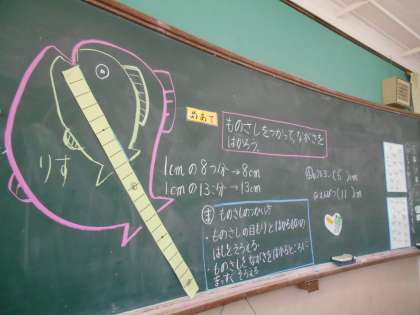 りす
めあて
ものさしをつかって、ながさを
はかろう。
1cmの8つ分→8cm
1cmの13こ分→13cm
ま ものさしのつかい方
・ものさしの目もりとはかるものの
はしをそろえる。
・ものさしをながさをはかるところに
まっすぐそろえる
(5)cm
(11)cm